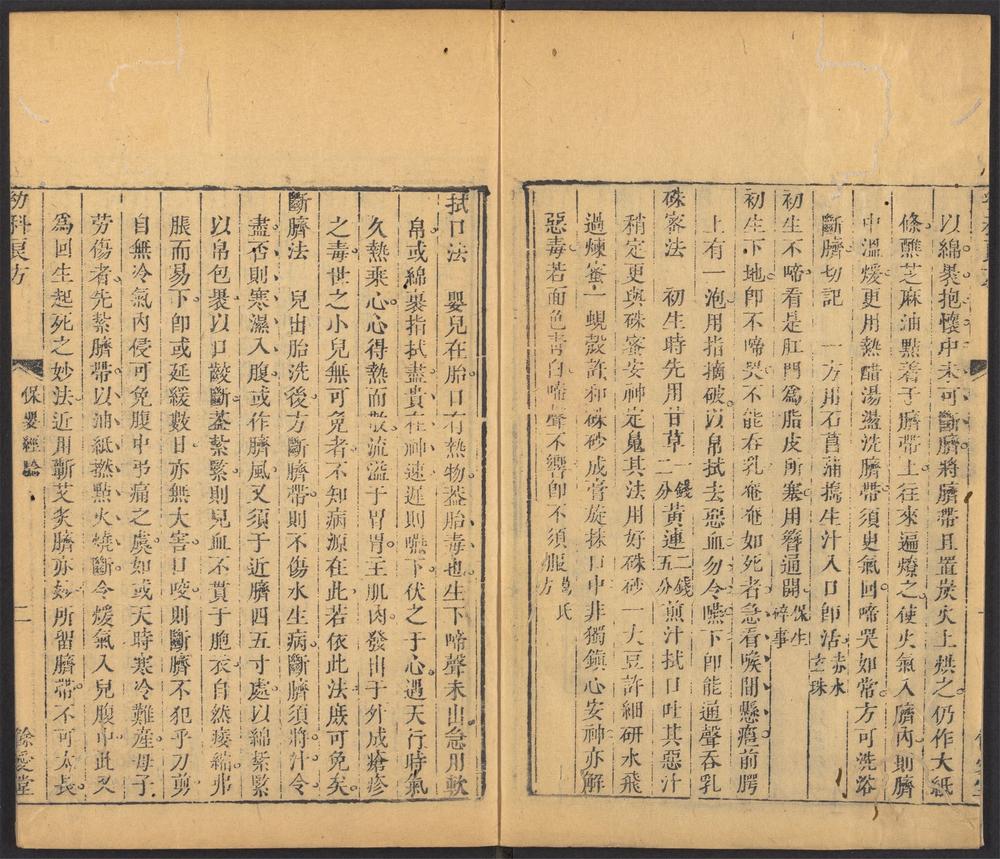 以綿裹抱懷中未可斷臍將臍帶且置炭火上烘之仍作大紙
條蘸芝麻油點着于臍帶上往來遍燎之使火氣入臍內則臍
中溫煖更用熱醋湯盪洗臍帶須臾氣回啼哭如常方可洗浴
斷臍切記　一方用石菖蒲搗生汁入口即活赤水玄珠
初生不啼看是肛門爲脂皮所塞用簪通開保生碎事
初生下地即不啼哭不能吞乳奄奄如死者急看喉間懸癰前腭
上有一泡用指摘破以帛拭去惡血勿令嚥下即能通聲吞乳
硃蜜法　初生時先用甘草一錢二分黃連二錢五分煎汁拭口吐其惡汁
稍定更與硃蜜安神定魄其法用好硃砂一大豆許細研水飛
過煉蜜一蜆殼許和硃砂成膏旋抹口中非獨鎮心安神亦解
惡毒若面色青白啼聲不響即不須服葛氏方
拭口法　嬰兒在胎口有熱物葢胎毒也生下啼聲未出急用軟
帛或綿裹指拭盡貴在神速遲則嚥下伏之于心遇天行時氣
久熱乘心心得熱而散流溢于胃胃主肌肉發出于外成瘡疹
之毒世之小兒無可免者不知病源在此若依此法庶可免矣
斷臍法　兒出胎洗後方斷臍帶則不傷水生病斷臍須將汁令
盡否則寒濕入腹或作臍風又須于近臍四五寸處以綿紮緊
以帛包裹以口齩斷葢紮緊則兒血不貫于胞衣自然痿縮弗
脹而易下即或延緩數日亦無大害口咬則斷臍不犯乎刀剪
自無冷氣內侵可免腹中弔痛之虞如或天時寒冷難產母子
勞傷者先紮臍帶以油紙撚點火燒斷令煖氣入兒腹中此又
爲回生起死之妙法近用蘄艾炙臍亦妙所留臍帶不可太長
幼科良方
保嬰經驗
二
餘慶堂